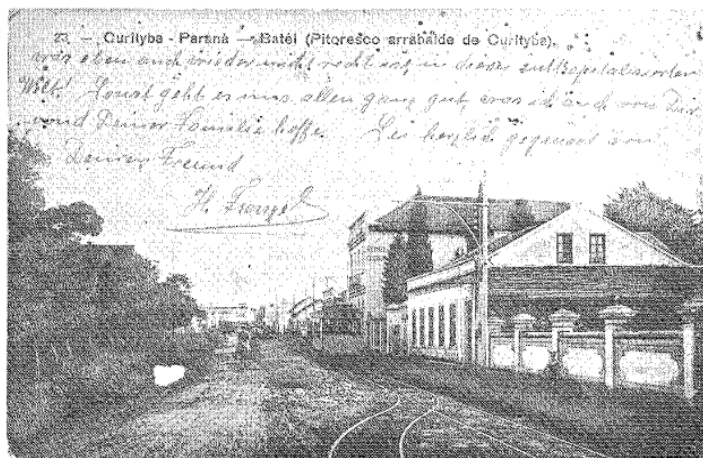 23 — Curityba - Paraná — Batél (Pitoresco arrabalde de Curityba).
was eben auch wieder nicht recht ist in dieser
Welt! Sonst geht es uns allen ganz gut, was ich auch von Dir
und Deiner Familie hoffe. Sei herzlich gegrüsst von
Deinem Freund
H.